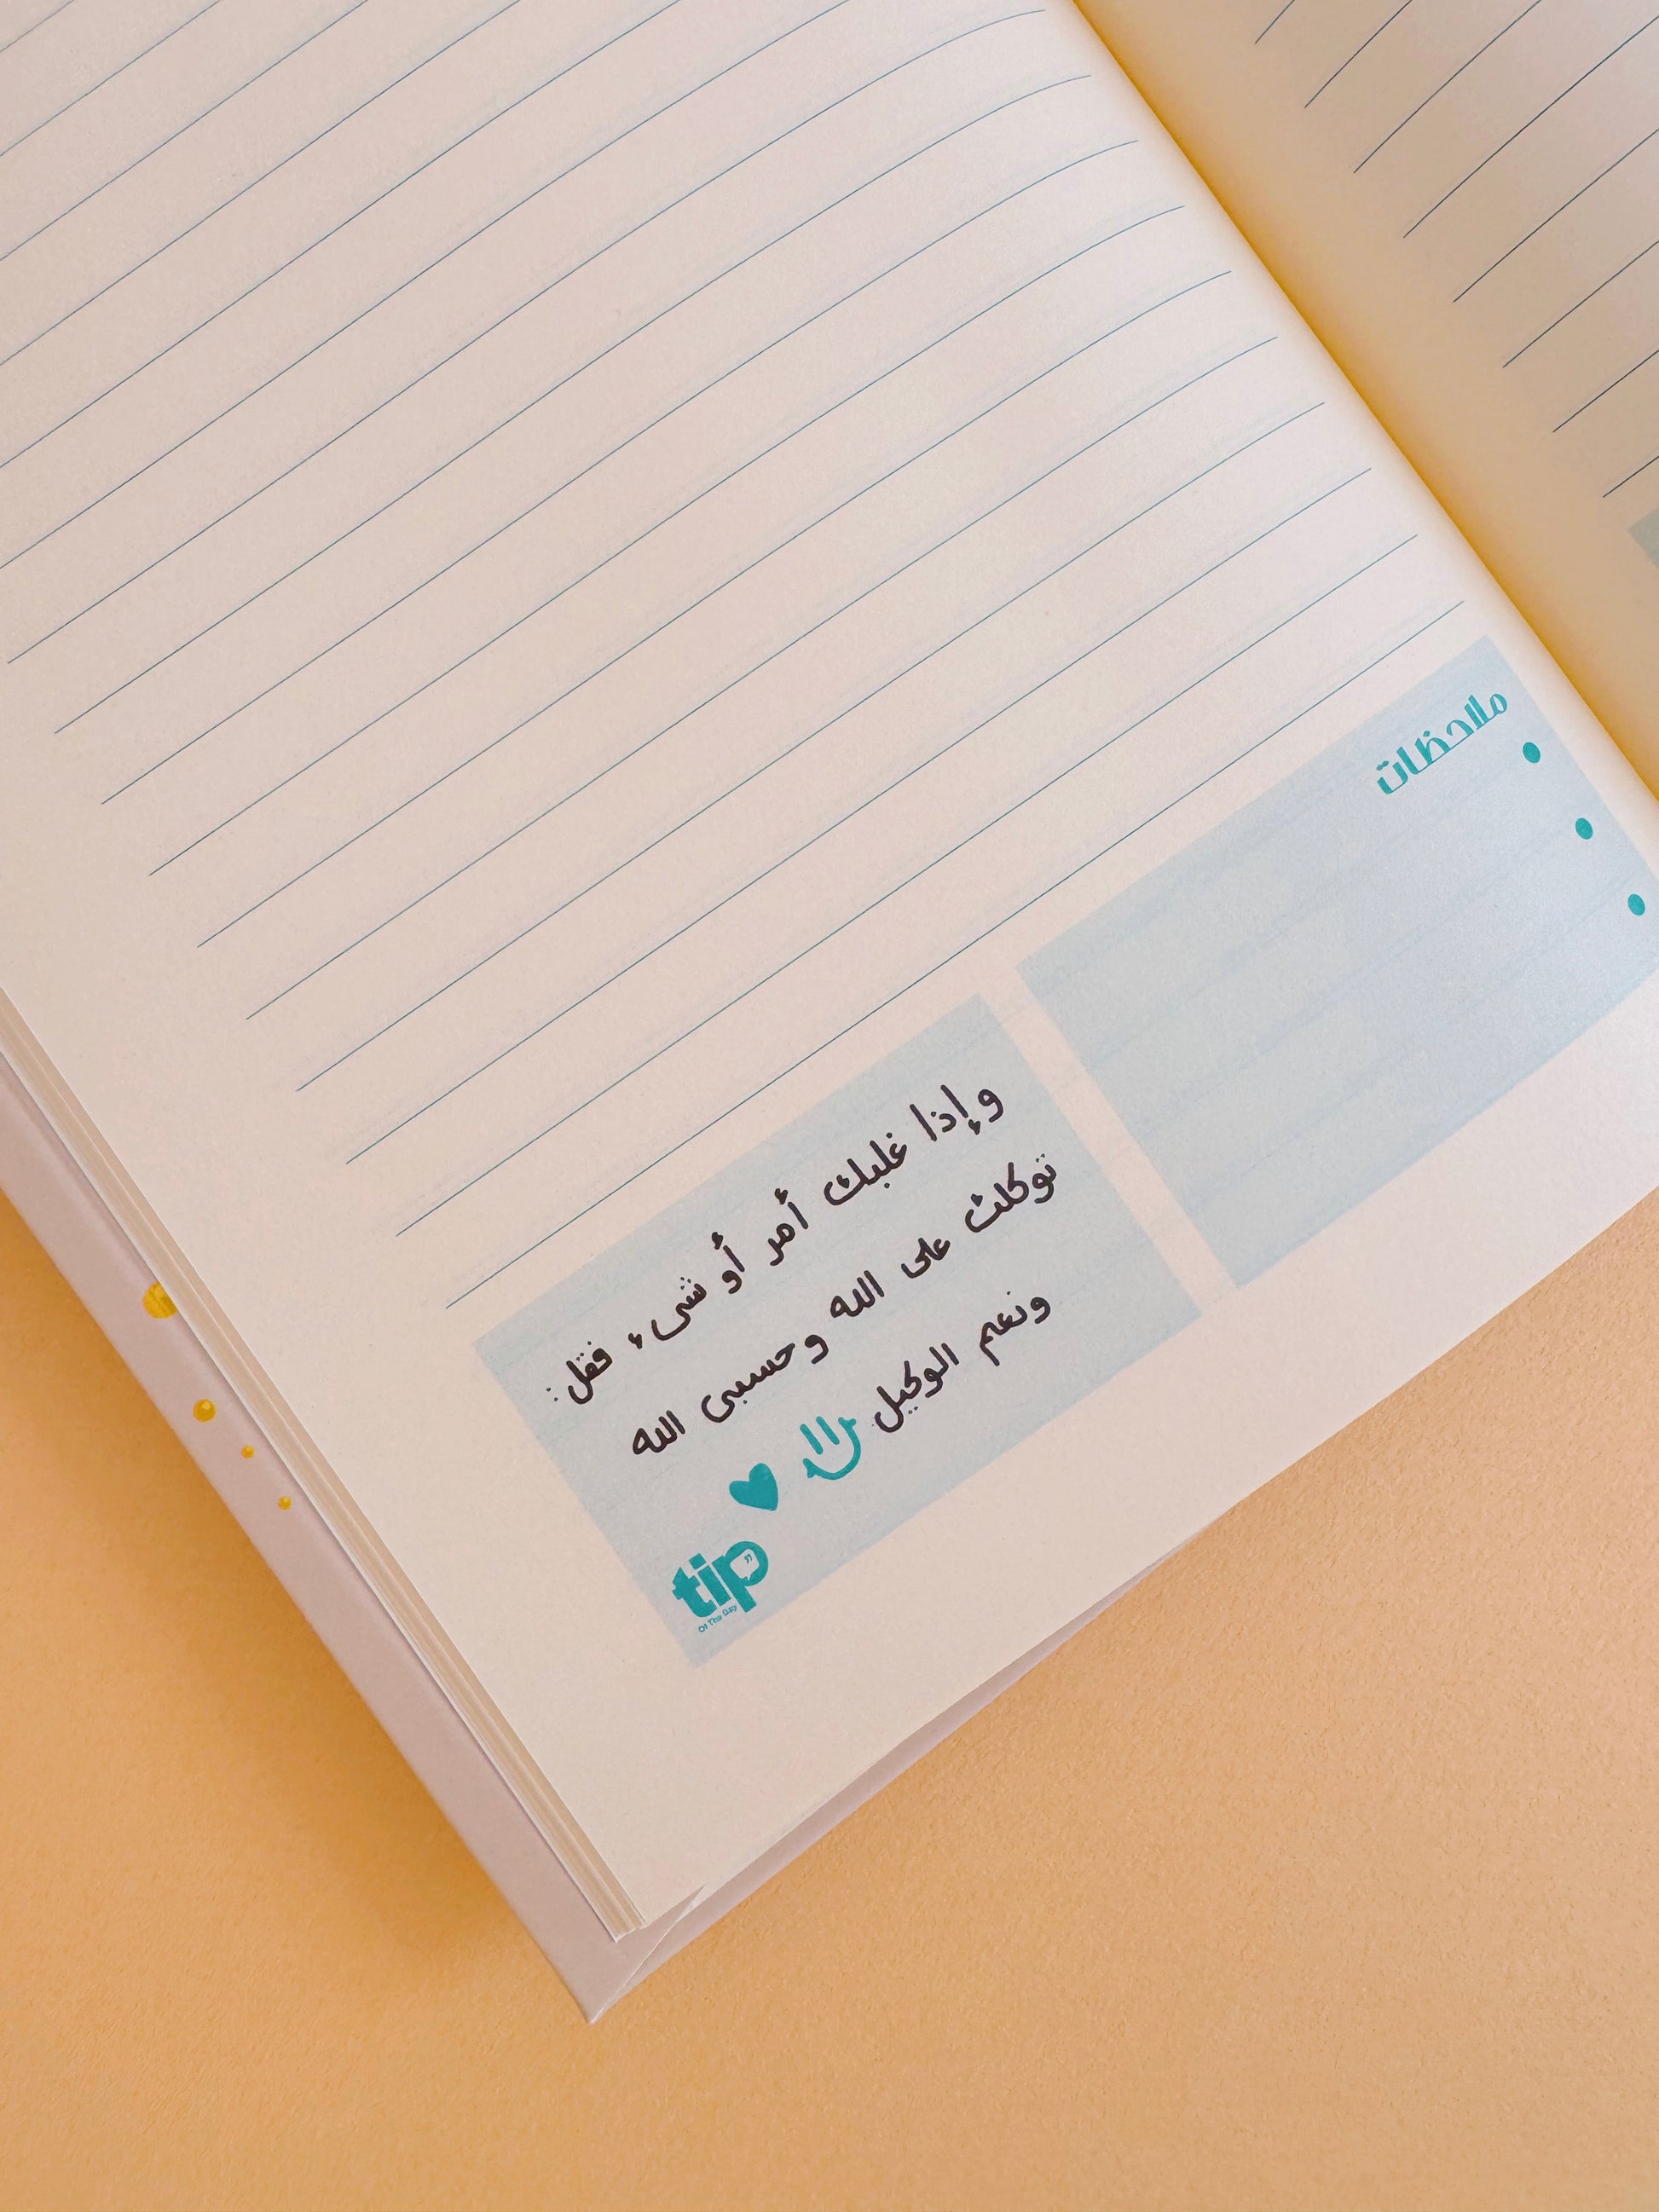 ملاحظات
وإذا غلبك أمر أو شىء فقل:
توكلت على الله وحسبى الله
ونعم الوكيل
tip
Of The Day